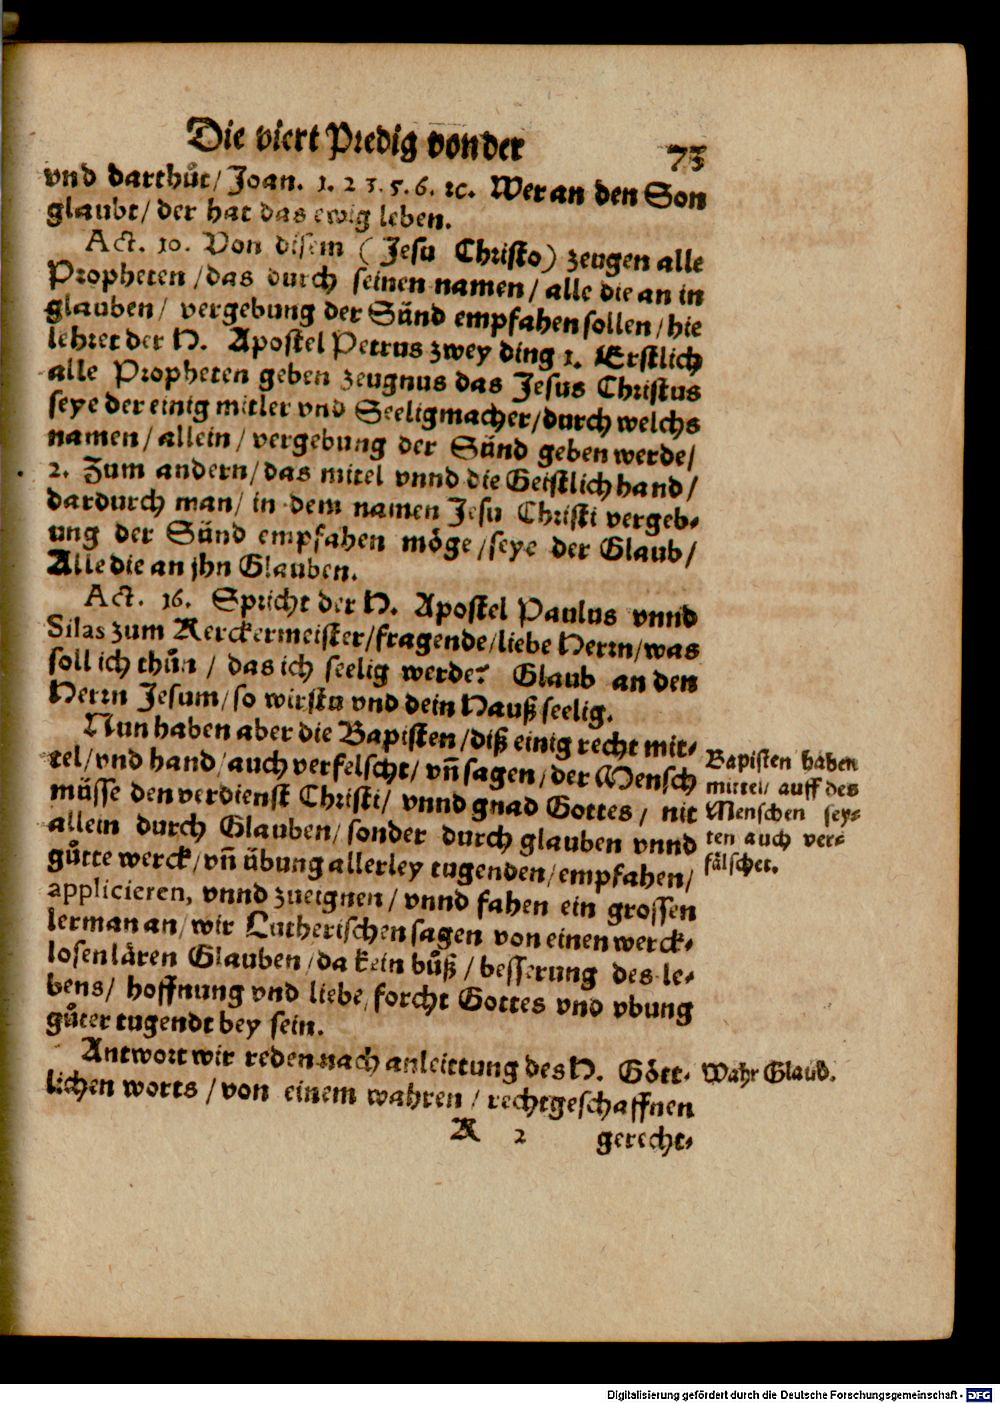 Die viert Predig von der 73
vnd darthůt/ Joan. 1. 2 3. 5. 6. ꝛc. Wer an den Son
glaubt/ der hat das ewig leben.
Act. 10. Von disem (Jesu Christo) zeugen alle
Propheten /das durch seinen namen/ alle die an in
glauben/ vergebung der Sünd empfahen sollen/hie
lehret der H. Apostel Petrus zwey ding 1. Erstlich
alle Propheten geben zeugnus das Jesus Christus
seye der einig mitler vnd Seeligmacher/durch welchs
namen/allein/ vergebung der Sünd geben werde/
2. Zum andern/das mitel vnnd die Geistlich hand/
dardurch man/ in dem namen Jesu Christi vergeb⸗
ung der Sünd empfahen möge/seye der Glaub/
Alle die an jhn Glauben.
Act. 16. Spricht der H. Apostel Paulus vnnd
Silas zum Kerckermeister/fragende/liebe Herrn/was
soll ich thůn / das ich seelig werde? Glaub an den
Herrn Jesum/so wirstu vnd dein Hauß seelig.
Nun haben aber die Bapisten/diß einig recht mit⸗
tel/vnd hand/auch verfelscht/ vñ sagen/der Mensch
müsse den verdienst Christi/ vnnd gnad Gottes/ nit
allein durch Glauben/sonder durch glauben vnnd
gůtte werck/vñ übung allerley tugenden/empfahen/
applicieren, vnnd zueignen/vnnd fahen ein grossen
lerman an/wir Lutherischen sagen von einen werck⸗
losen lären Glauben/da kein bůß/besserung des le⸗
bens/ hoffnung vnd liebe/forcht Gottes vnd vbung
gůter tugendt bey sein.
Antwort wir reden nach anleittung des H. Gött⸗
lichen worts /von einem wahren/ rechtgeschaffnen
K 2 gerecht⸗
Bapisten haben
mittel/ auff des
Menschen sey⸗
ten auch ver⸗
fälschet.
Wahr Glaub.
Digitalisierung gefördert durch die Deutsche Forschungsgemeinschaft - DFG